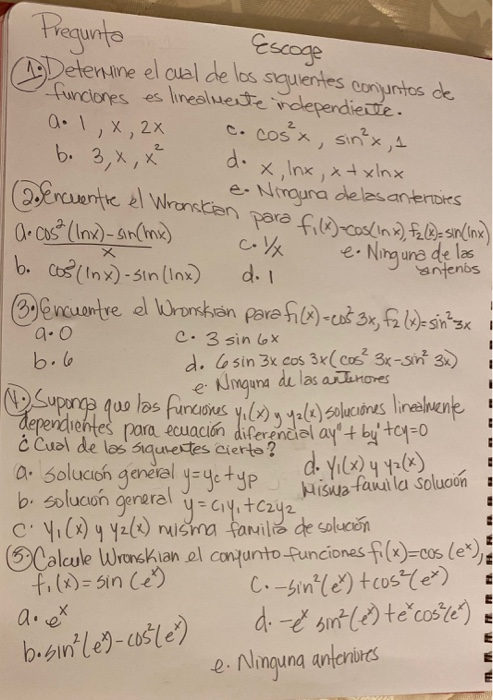 Pregunta Escoge
1. Determine el cual de los siguientes conjuntos de
funciones es linealmente independiente.
a. 1, x, 2x c. cos²x, sin²x, 1
b. 3, x, x² d. x, lnx, x + xlnx
e. Ninguna de las anteriores
2. Encuentre el Wronskian para f₁(x)=cos(lnx), f₂(x)=sin(lnx)
a. cos²(lnx)-sin(lnx)/x c. 1/x e. Ninguna de las
b. cos²(lnx)-sin(lnx) d. 1
3. Encuentre el Wronskian para f₁(x)=cos²3x, f₂(x)=sin²3x
a. 0 c. 3 sin 6x
b. 6 d. 6 sin 3x cos 3x(cos² 3x-sin² 3x)
e. Ninguna de las anteriores
4. Suponga que las funciones y₁(x) y y₂(x) soluciones linealmente
dependientes para ecuación diferencial ay"+by'+cy=0
¿Cual de las siguientes cierta?
a. solución general y=yc+yp d. y₁(x) y y₂(x)
Misma familia solución
b. solución general y=c₁y₁+c₂y₂
c. y₁(x) y y₂(x) misma familia de solución
5. Calcule Wronskian el conjunto funciones f₁(x)=cos(eˣ),
f₁(x)=sin(eˣ) c. -sin²(eˣ)+cos²(eˣ)
a. eˣ d. -eˣ sin²(eˣ)+eˣcos²(eˣ)
b. sin²(eˣ)-cos²(eˣ)
e. Ninguna anteriores